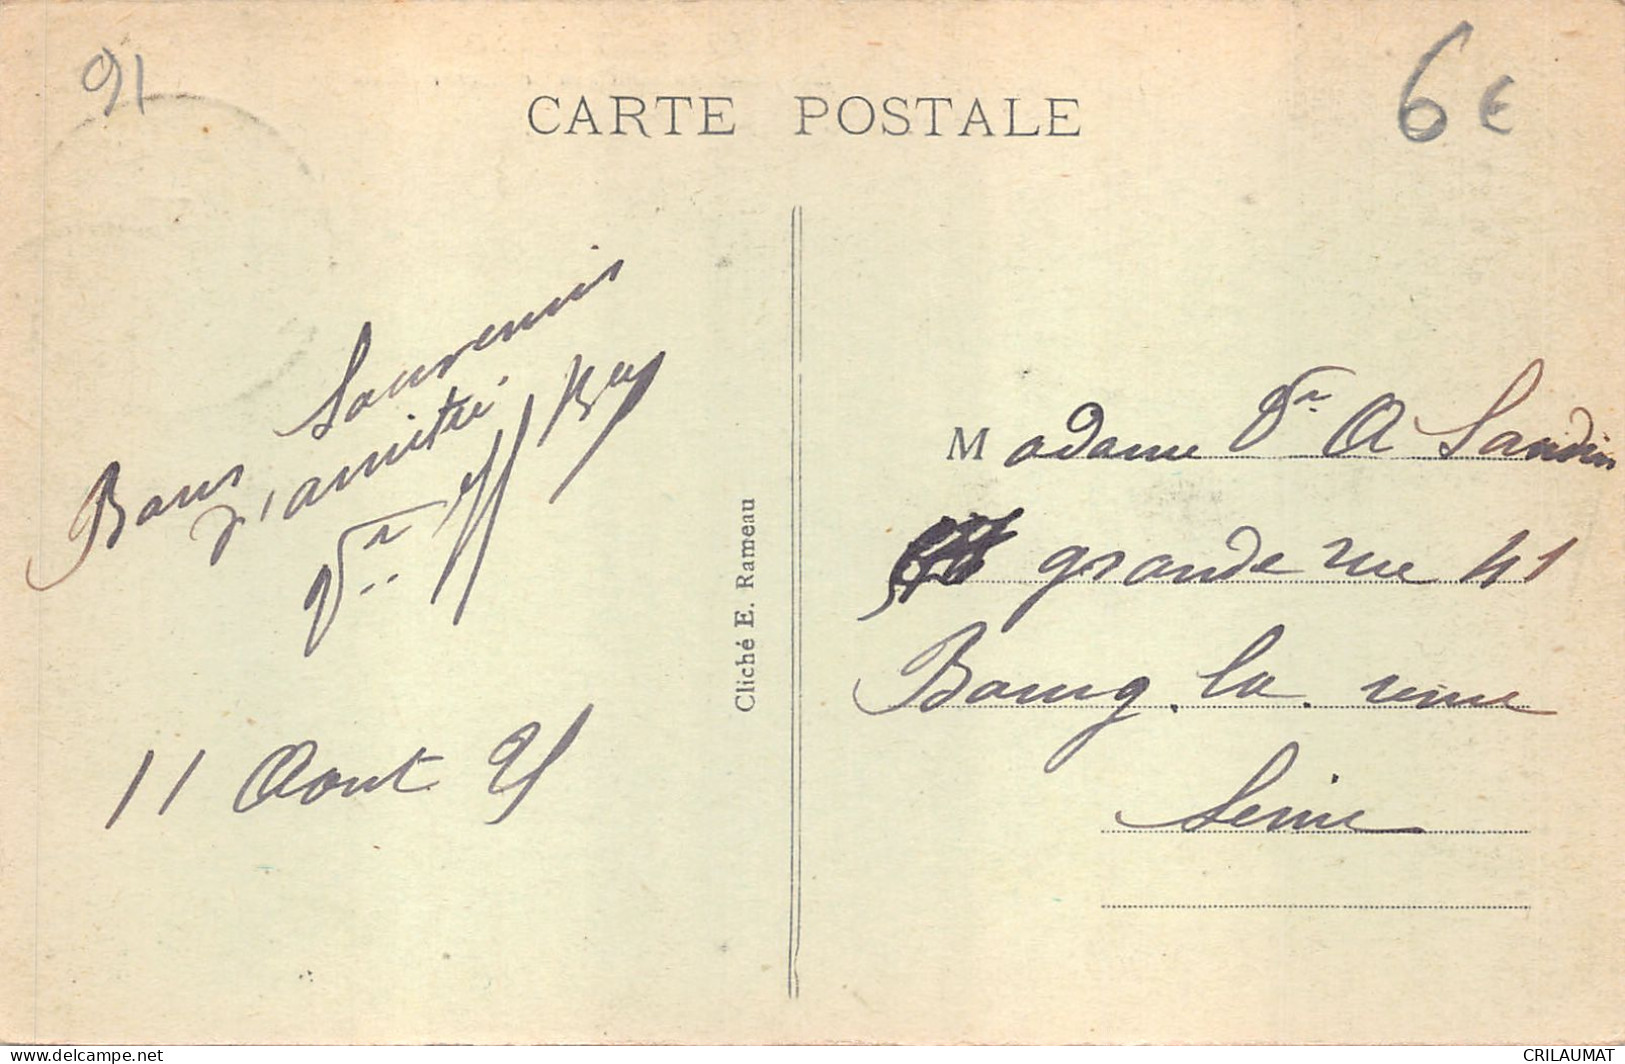 91
6 €
CARTE POSTALE
Bons Souvenirs
d'amitié
Vve
11 Aout 21
Cliché E. Rameau
Madame Vve A Sandin
grande rue 41
Bourg. la. reine
Seine
www.delcampe.net
CRILAUMAT